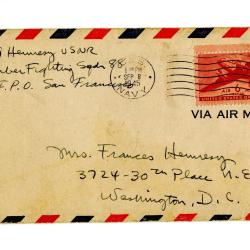 Hennessy USNR
Fighting Sqdn 88
F.P.O. San Francisco
SEP
NAVY
AIR
UNITED STATES
VIA AIR M
Mrs. Frances Hennessy
3724-30th Place N.E.
Washington, D.C.